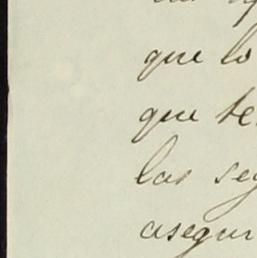 que lo
que te
las seg
asegur